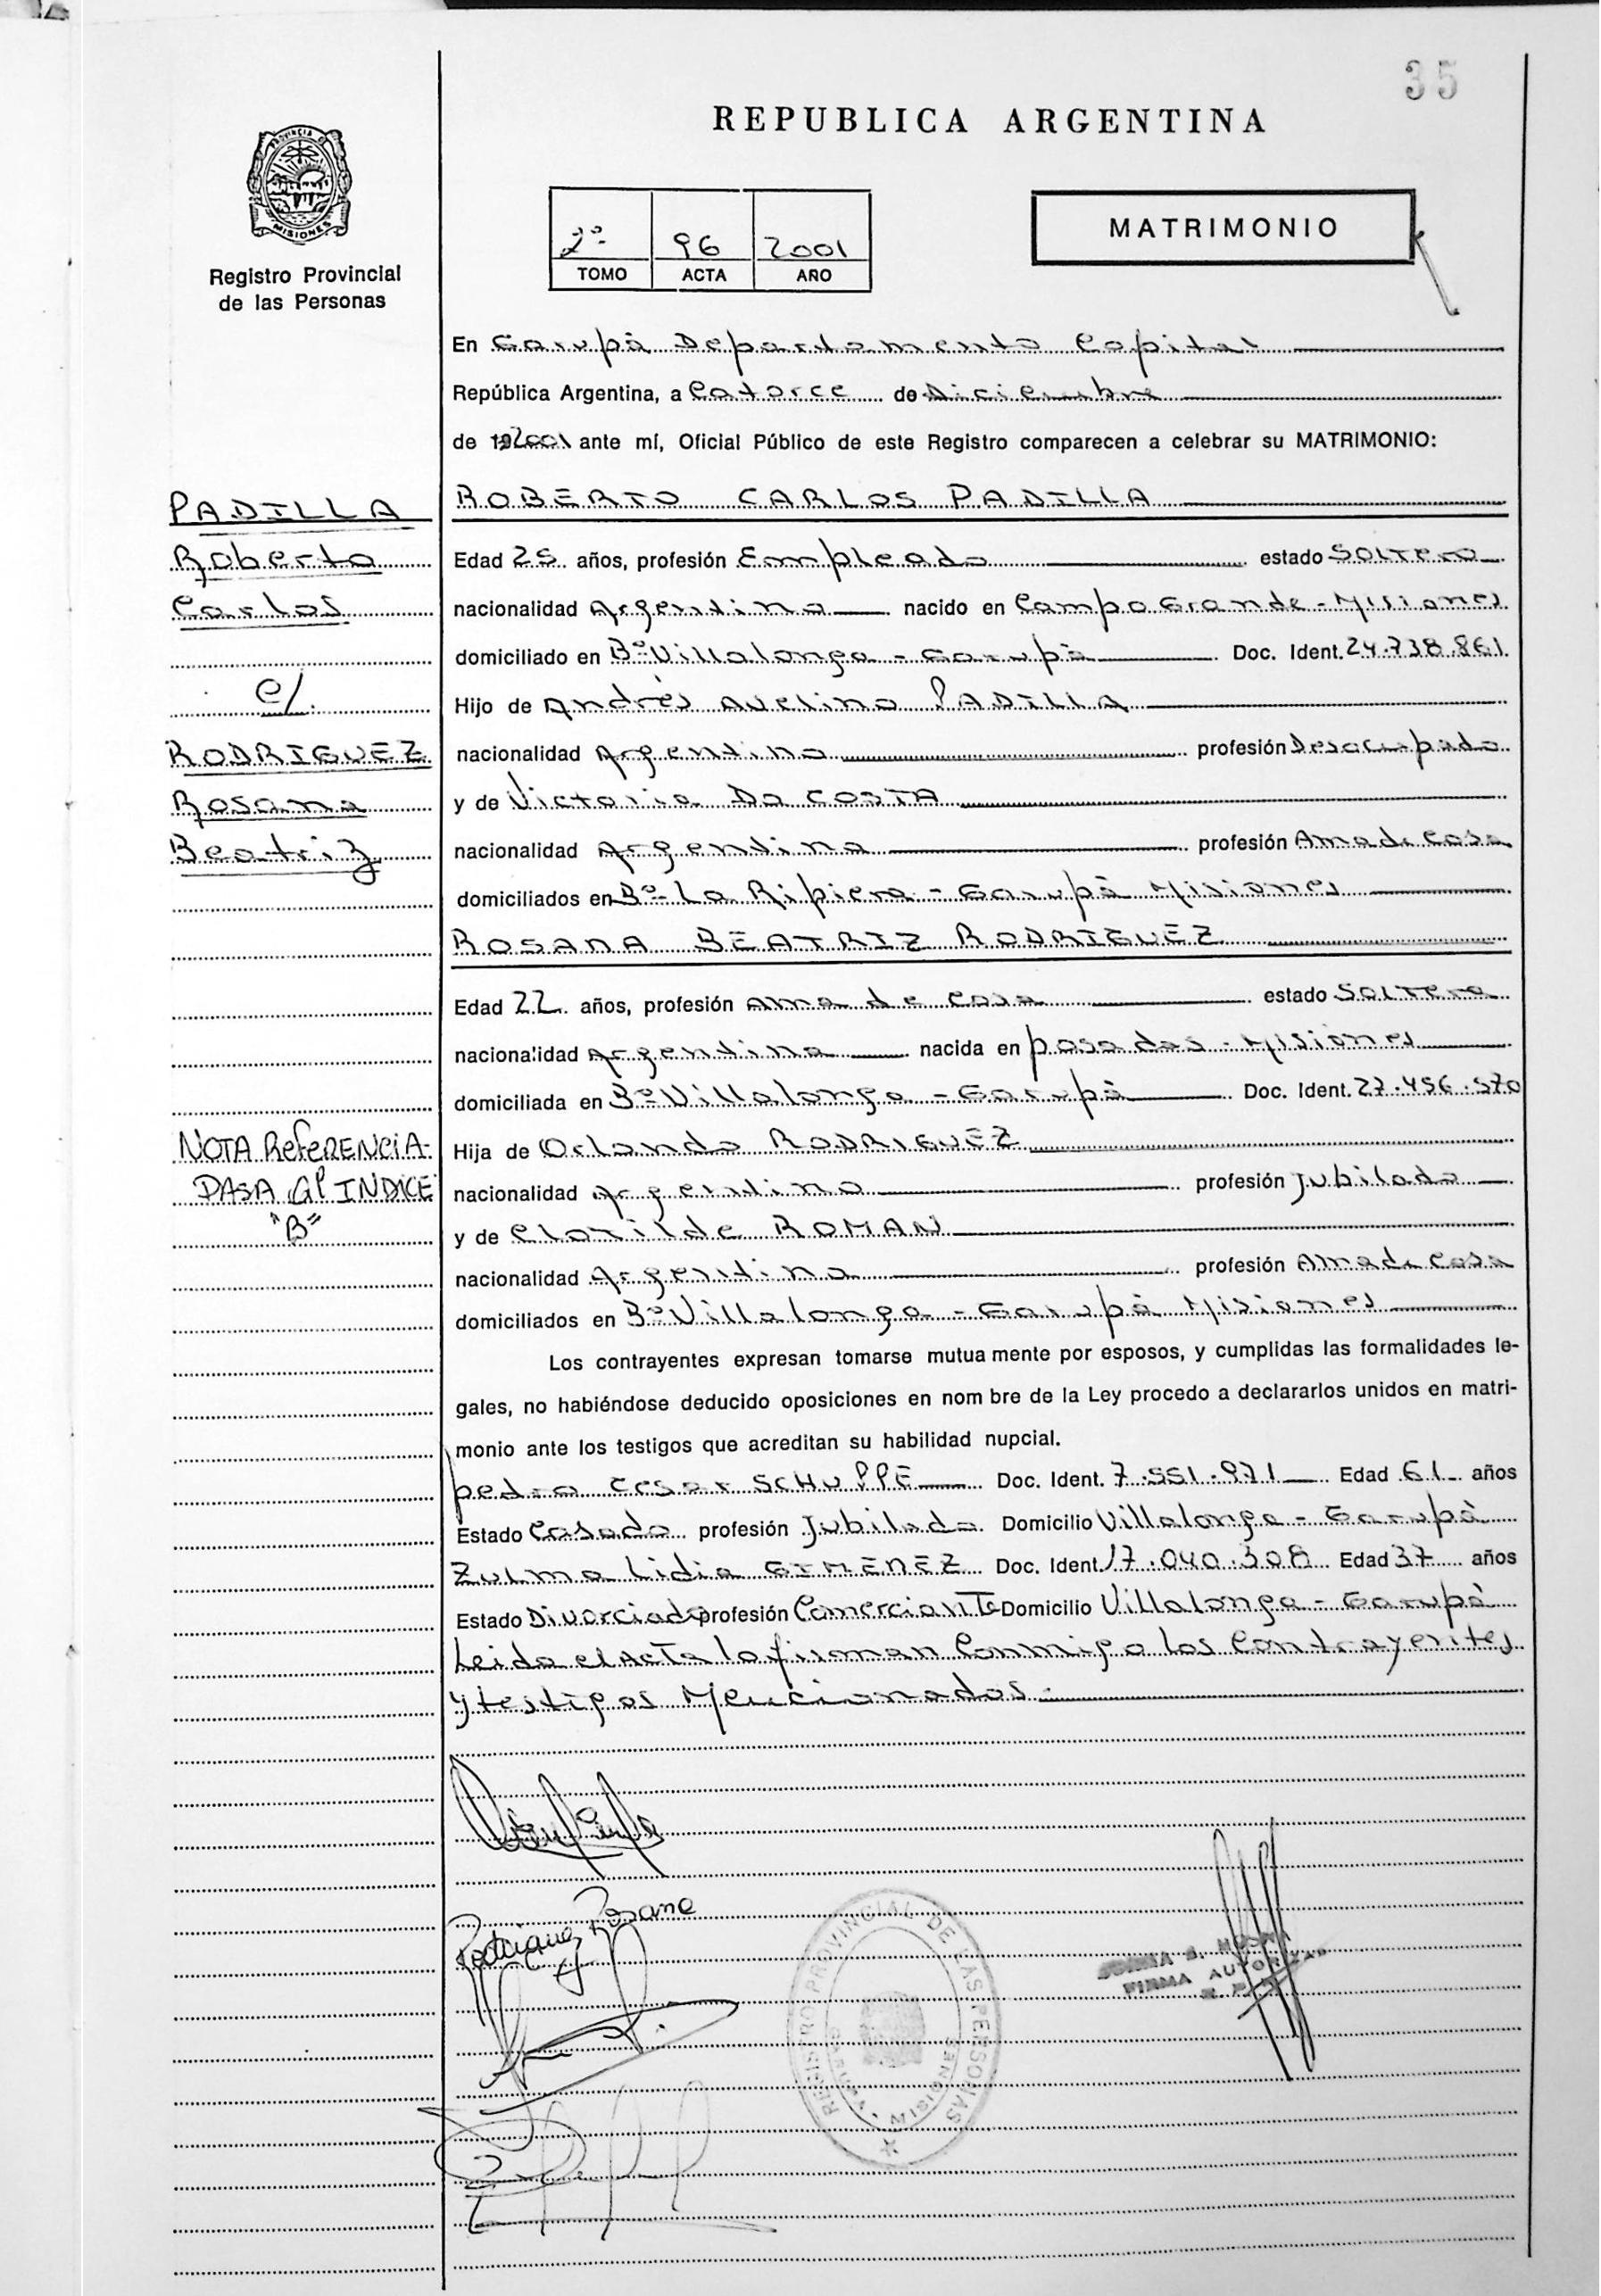 35
REPUBLICA ARGENTINA
PROVINCIA DE
MISIONES
Registro Provincial
de las Personas
2º 96 2001
TOMO ACTA AÑO
MATRIMONIO
En Garupà Departamento Capital
República Argentina, a Catorce de Diciembre
de 2001 ante mí, Oficial Público de este Registro comparecen a celebrar su MATRIMONIO:
PADILLA
Roberto
Carlos
c/.
RODRIGUEZ
Rosana
Beatriz
ROBERTO CARLOS PADILLA
Edad 25 años, profesión Empleado estado SOLTERO
nacionalidad Argentina nacido en Campo Grande - Misiones
domiciliado en Bº Villalonga - Garupà Doc. Ident. 24.738.861
Hijo de Andrès Avelino PADILLA
nacionalidad Argentino profesión Desocupado
y de Victoria Da COSTA
nacionalidad Argentina profesión Ama de Casa
domiciliados en Bº La Ripiera - Garupà Misiones
ROSANA BEATRIZ RODRIGUEZ
Edad 22 años, profesión Ama de Casa estado SOLTERA
nacionalidad Argentina nacida en posadas - Misiones
domiciliada en Bº Villalonga - Garupà Doc. Ident. 27.456.570
NOTA REFERENCIA-
PASA al INDICE
"B"
Hija de Orlando RODRIGUEZ
nacionalidad Argentino profesión Jubilado
y de Clotilde ROMAN
nacionalidad Argentina profesión Ama de Casa
domiciliados en Bº Villalonga - Garupà Misiones
Los contrayentes expresan tomarse mutua mente por esposos, y cumplidas las formalidades le-
gales, no habiéndose deducido oposiciones en nom bre de la Ley procedo a declararlos unidos en matri-
monio ante los testigos que acreditan su habilidad nupcial.
pedro Cesar SCHUPPE Doc. Ident. 7.551.971 Edad 61 años
Estado Casado profesión Jubilado Domicilio Villalonga - Garupà
Zulma Lidia GIMENEZ Doc. Ident. 17.040.308 Edad 37 años
Estado Divorciada profesión Comerciante Domicilio Villalonga - Garupà
Leida el Acta la firman Conmigo los Contrayentes
y testigos Mencionados.
Rodriguez Rosana
REGISTRO PROVINCIAL DE LAS PERSONAS
MISIONES
FIRMA AUTORIZAD